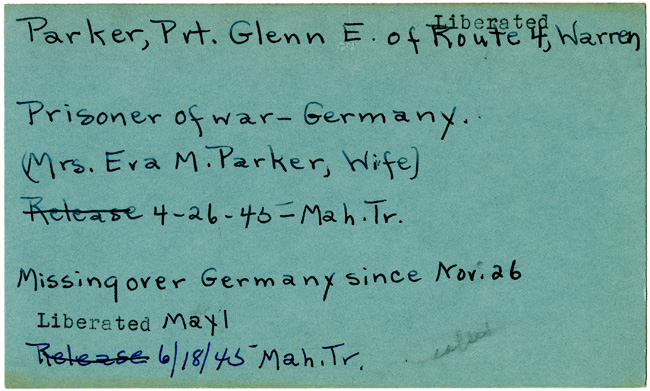 Liberated
Parker, Prt. Glenn E. of Route 4, Warren
Prisoner of war - Germany.
(Mrs. Eva M. Parker, Wife)
Release 4-26-45 - Mah. Tr.
Missing over Germany since Nov. 26
Liberated May 1
Release 6/18/45 Mah. Tr.